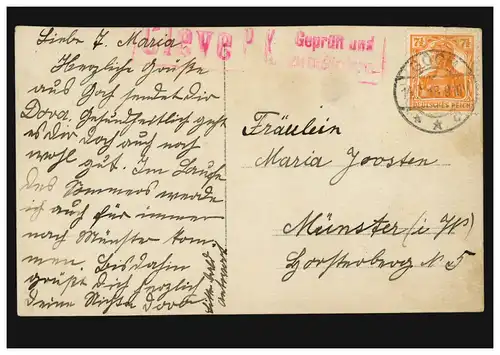 Liebe T. Maria
Herzliche Grüße
aus Goch sendet dir
Dora. Gesundheitlich geht
es dir doch auch noch
wohl gut. Im Laufe
des Sommers werde
ich auch für immer
nach Münster kom-
men. Bis dahin
grüßt Dich herzlich
deine Nichte Dora
Bitte bald
Antwort
Cleve
Geprüft und
7½ 7½
GOCH
DEUTSCHES REICH
Fräulein
Maria Joosten
Münster (i W)
Horsterberg N 5